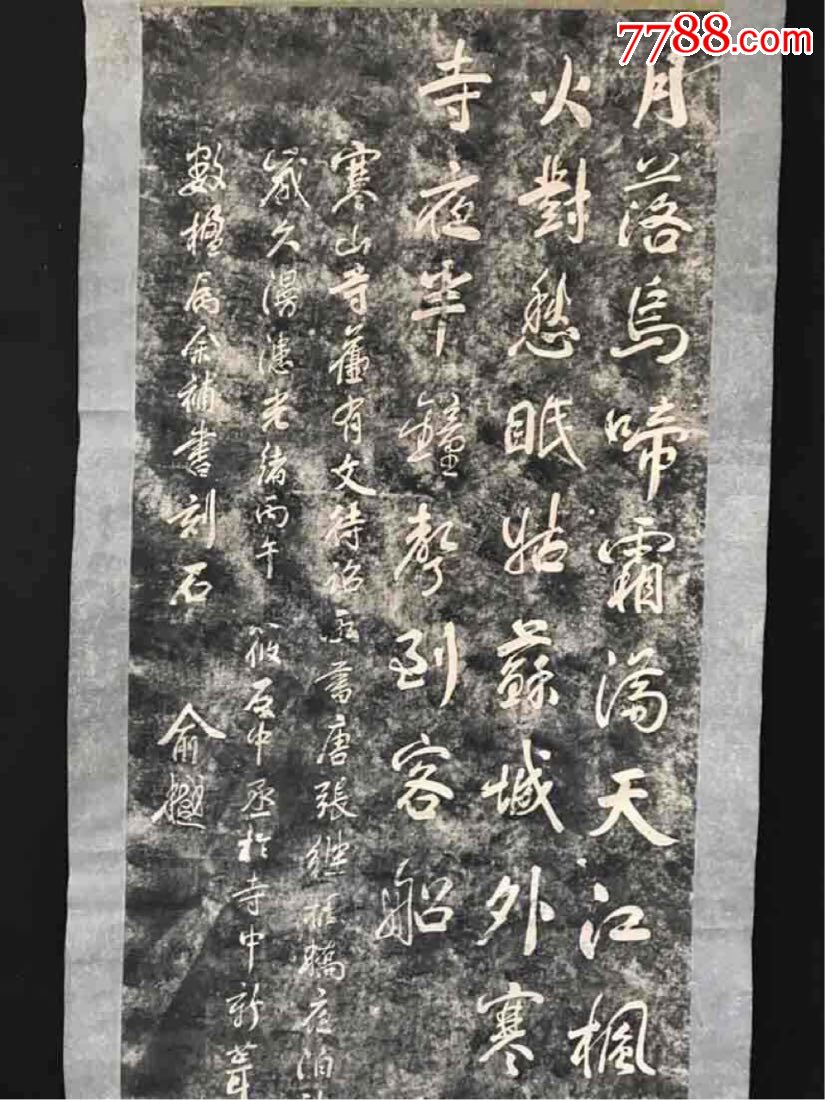 7788.com
月落烏啼霜滿天江楓
火對愁眠姑蘇城外寒
寺夜半鐘聲到客船
寒山寺舊有文待詔所書唐張繼楓橋夜泊
歲久漫漶光緒丙午筱石中丞於寺中新葺
數楹屬余補書刻石俞樾